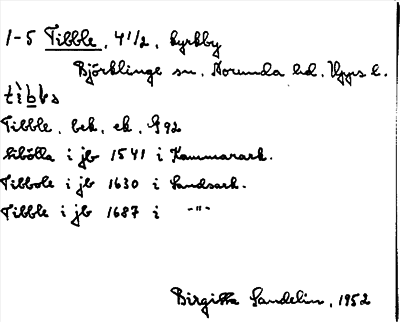 1-5 Tibble, 4 1/2, kyrkby
Björklinge sn, Norunda hd, Upps l.
Tibble, bek. ek. G 92
i jb 1541 i Kammarark.
Tibbole i jb 1630 i Landsark.
Tibble i jb 1687 i -"-
Birgitta Sandelin, 1952